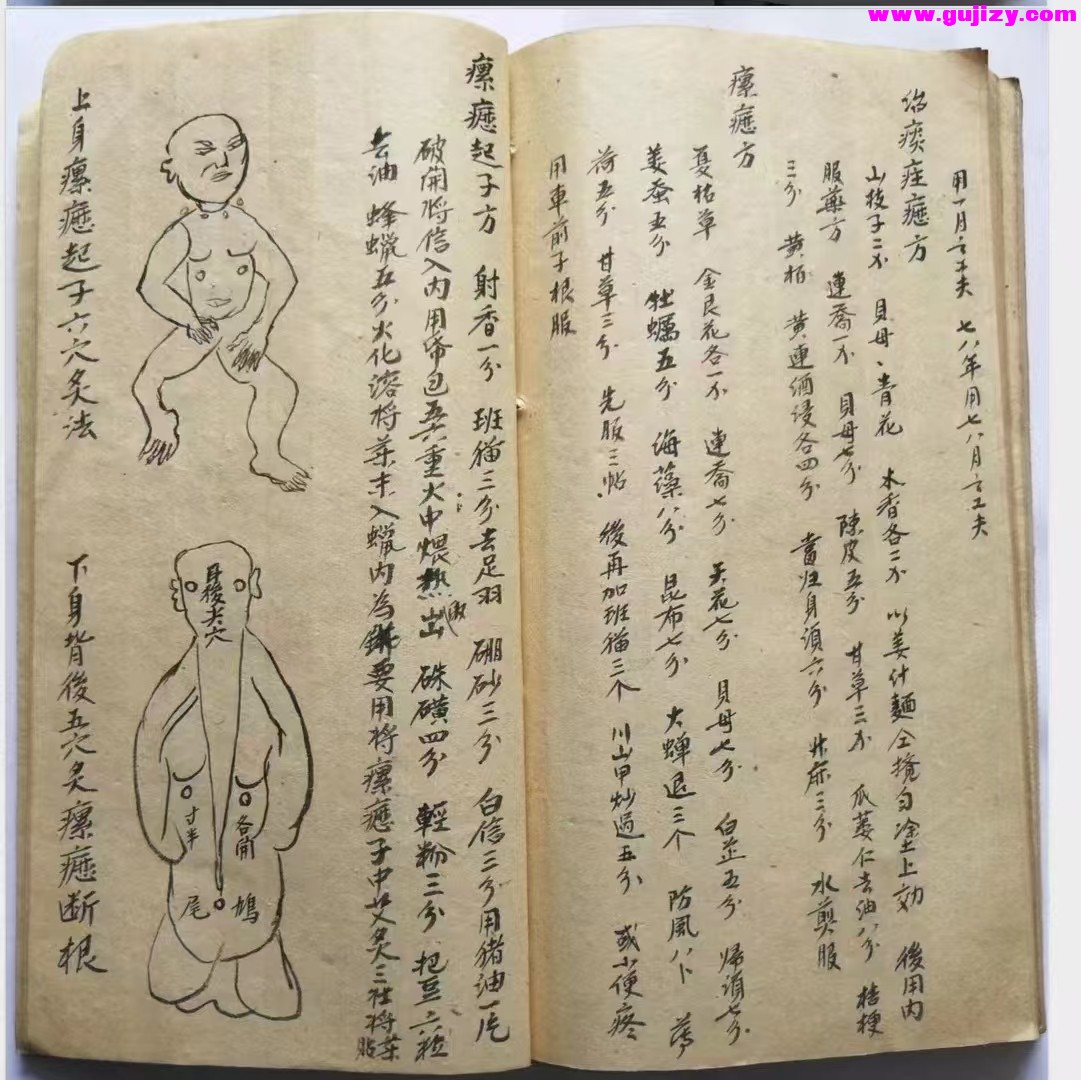 www.gujizy.com
用一月之工夫 七八年用七八月之工夫
治痰痓癧方
山枝子二不 貝母、青花 木香各二不 以姜汁麵仝攪匀塗上効 後用内
服藥方 連喬一不 貝母七分 陳皮五分 甘草三不 瓜蒌仁去油八分 桔梗
三分 黄栢 黄連酒浸各四分 當归身須六分 升麻三分 水煎服
瘰癧方
夏枯草 金艮花各一不 連喬七分 天花七分 貝母七分 白芷五分 帰須七分
姜蚕五分 牡蠣五分 海藻八分 昆布七分 大蝉退三个 防風八卜 薄
荷五分 甘草三分 先服三帖 後再加班猫三个 川山甲炒過五分 或小便疼
用車前子根服
瘰癧起子方 射香一分 班猫三分去足羽 硼砂三分 白信三分用猪油一片
破開将信入内用帋包五六重火中煨熱出 硃磺四分 輕粉三分 把豆六粒
去油 蜂蠟五分火化溶将薬末入蠟内為 要用将瘰癧子中艾炙三壮将薬
貼
上身瘰癧起子六穴炙法
耳後夫穴
各開
寸半
鳩
尾
下身背後五穴炙瘰癧断根